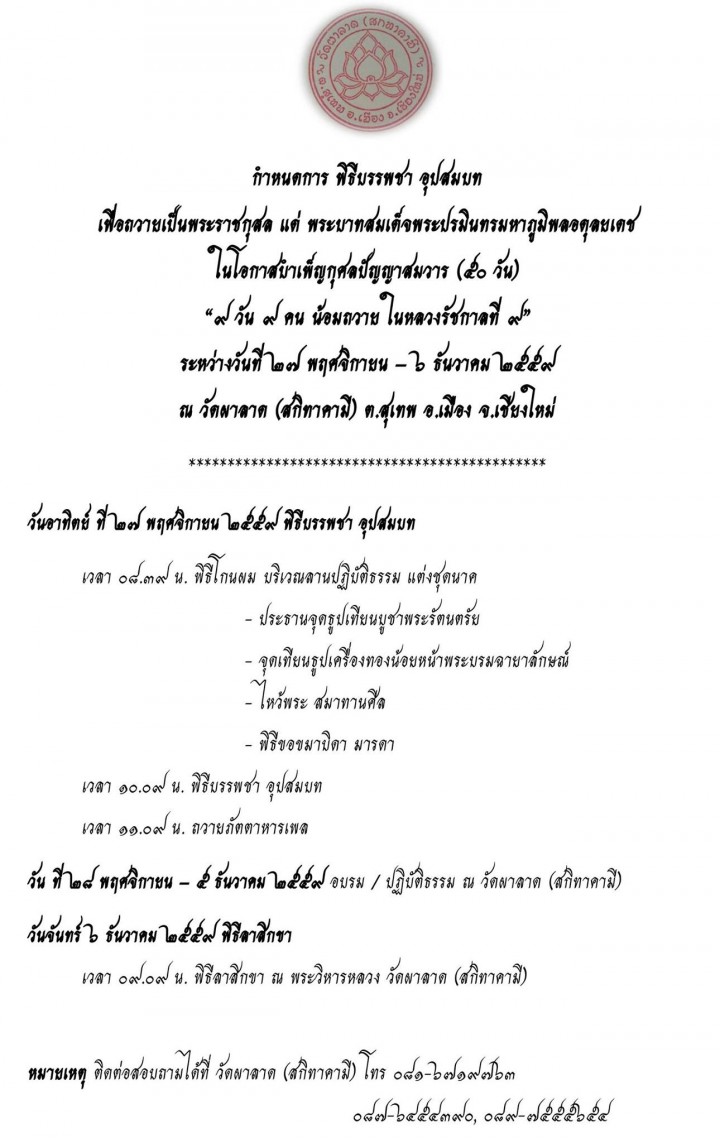 วัดผาลาด (สกทาคามี)
ต.สุเทพ อ.เมือง จ.เชียงใหม่
กำหนดการ พิธีบรรพชา อุปสมบท
เพื่อถวายเป็นพระราชกุศล แด่ พระบาทสมเด็จพระปรมินทรมหาภูมิพลอดุลยเดช
ในโอกาสบำเพ็ญกุศลปัญญาสมวาร (๕๐ วัน)
“๙ วัน ๙ คน น้อมถวาย ในหลวงรัชกาลที่ ๙”
ระหว่างวันที่ ๒๗ พฤศจิกายน – ๖ ธันวาคม ๒๕๕๙
ณ วัดผาลาด (สกิทาคามี) ต.สุเทพ อ.เมือง จ.เชียงใหม่
**********************************************
วันอาทิตย์ ที่ ๒๗ พฤศจิกายน ๒๕๕๙ พิธีบรรพชา อุปสมบท
เวลา ๐๘.๓๙ น. พิธีโกนผม บริเวณลานปฏิบัติธรรม แต่งชุดนาค
- ประธานจุดธูปเทียนบูชาพระรัตนตรัย
- จุดเทียนธูปเครื่องทองน้อยหน้าพระบรมฉายาลักษณ์
- ไหว้พระ สมาทานศีล
- พิธีขอขมาบิดา มารดา
เวลา ๑๐.๐๙ น. พิธีบรรพชา อุปสมบท
เวลา ๑๑.๐๙ น. ถวายภัตตาหารเพล
วัน ที่ ๒๘ พฤศจิกายน – ๕ ธันวาคม ๒๕๕๙ อบรม / ปฏิบัติธรรม ณ วัดผาลาด (สกิทาคามี)
วันจันทร์ ๖ ธันวาคม ๒๕๕๙ พิธีลาสิกขา
เวลา ๐๙.๐๙ น. พิธีลาสิกขา ณ พระวิหารหลวง วัดผาลาด (สกิทาคามี)
หมายเหตุ ติดต่อสอบถามได้ที่ วัดผาลาด (สกิทาคามี) โทร ๐๘๑-๖๗๑๙๗๖๓
๐๘๗-๖๔๕๔๓๙๐, ๐๘๙-๗๕๕๕๖๕๔